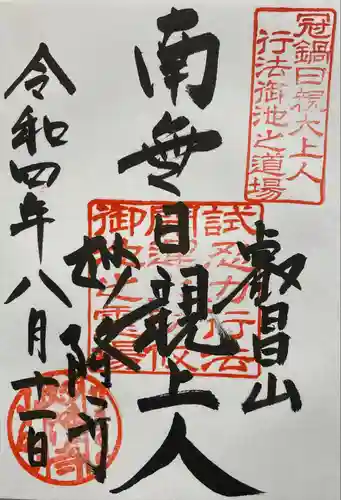 冠鍋日親大上人
行法御池之道場
叡昌山
南無日親上人
妙隆寺
令和四年八月十一日